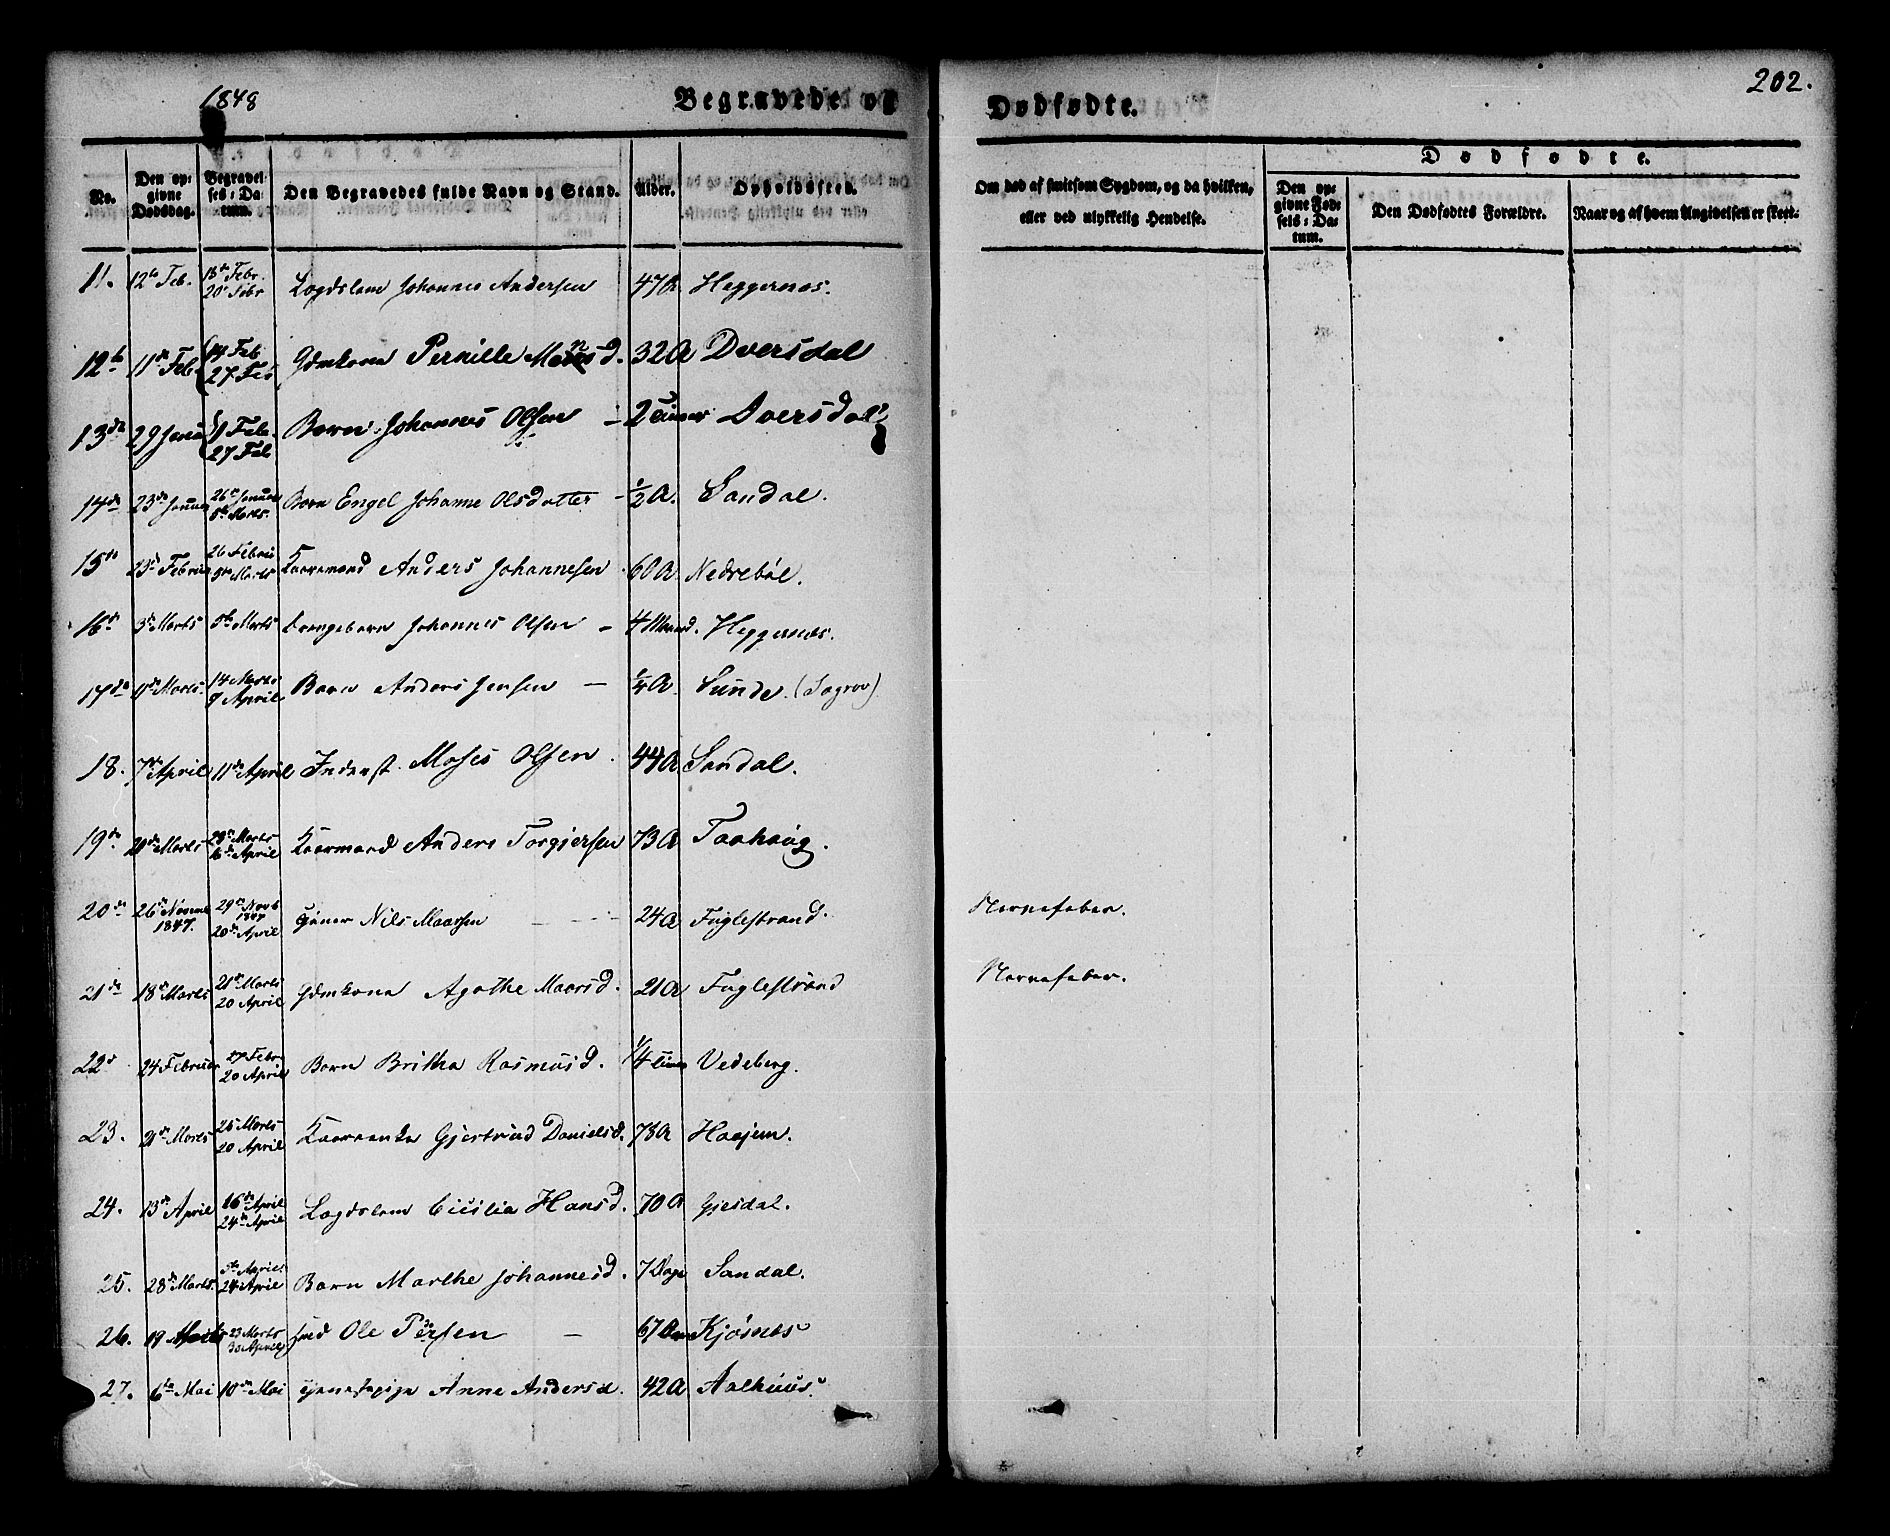 1848
Begravede og
Dødfødte.
202.
No.
Den opgivne Dødsdag.
Begravelses-Datum.
Den Begravedes fulde Navn og Stand.
Alder.
Opholdssted.
Om død af smitsom Sygdom, og da hvilken, eller ved ulykkelig Hendelse.
Dødfødte.
Den opgivne Fødsels-Datum.
Den Dødfødtes Forældre.
Naar og af hvem Angivelsen er skeet.
11. 12te Feb. 15de Febr. 20 Febr Lægdslem Johannes Andersen 47 A Heggernæs.
12te 11te Feb. 14 Feb 27 Feb Gdmkone Pernille Monsd. 32 A Dvergsdal
13de 29 Janu 1 Feb. 27 Feb Barn Johannes Olsen - 2 Dvergsdal
14de 23de Januar 26de Januar 5te Marts. Barn Engel Johanne Olsdatter - 1/2 A. Sandal.
15de 23de Februar 26 Februar 5te Marts Kaaremand Anders Johannesen 60 A Nedrebøl.
16de 3de Marts 5te Marts Drængebarn Johannes Olsen - 4 Maaned. Heggernæs.
17de 9de Marts. 14 Marts 9 April Barn Anders Jensen - 1/4 A. Sunde. (Søgrov)
18. 7de April 11te April Inderst. Moses Olsen. 44 A Sandal.
19de 20de Marts 23de Marts 16de April Kaarmand Anders Torgjersen 73 A Taahaug.
20de 26de Novemb 1847. 29de Novb 1847 20de April Gdmand Nils Maarsen - 24 A Fuglestrand. Nervefeber.
21de 18de Marts 21de Marts 20 April Gdmkone Agathe Maarsd. 21 A Fuglestrand Nervefeber.
22de 24 Februar 27 Febr 20 April Barn Britha Rasmusd. 1/4 Vedeberg.
23. 21de Marts 25 Marts 20 April Kaarenke Gjertrud Danielsd. 78 A Haajem.
24. 13de April 16de April 24de April Lægdslem Cicilia Hansd. 70 A Gjesdal.
25. 28de Marts. 5te April 24 April Barn Marthe Johannesd. 7 Dage Sandal.
26. 19 Marts 23 Marts 30 April Ole Persen - 67 Kjøsnæs
27. 6te Mai 10de Mai Tjenestepige Anne Andersd. 42 A Aalhuus.